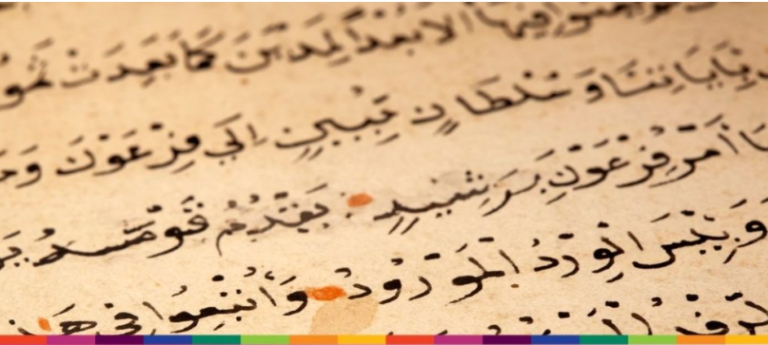 فيها الا بعدا لمدين كما بعدت ثمو
بِاٰيَاتِنَا وَسُلْطَانٍ مُّبِينٍ اِلَى فِرْعَوْنَ وَ
أَمْرُ فِرْعَوْنَ بِرَشِيدٍ يَقْدُمُ قَوْمَهُ
وَبِئْسَ الْوِرْدُ الْمَوْرُودُ وَأُتْبِعُوا فِي هَٰ